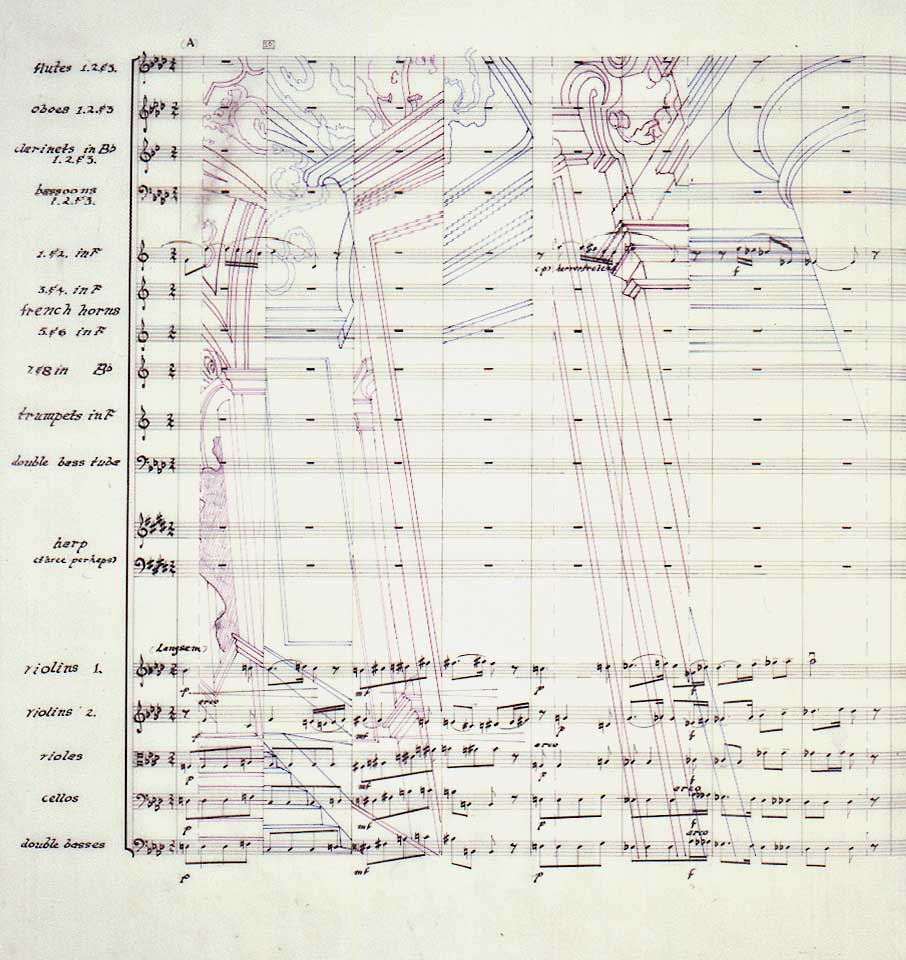 (A)
flutes 1.2.&3.
oboes 1.2.&3
clarinets in B♭
1.2.&3.
bassoons
1.2.&3.
1.&2. in F
3.&4. in F
french horns
5.&6 in F
7.&8 in B♭
trumpets in F
double bass tuba
harp
(three perhaps)
(Langsam)
violins 1.
p
mf
p
f
violins 2.
arco
f
mf
p
f
violas
arco
p
mf
p
f
cellos
arco
p
mf
p
f
double basses
arco
p
mf
p
f